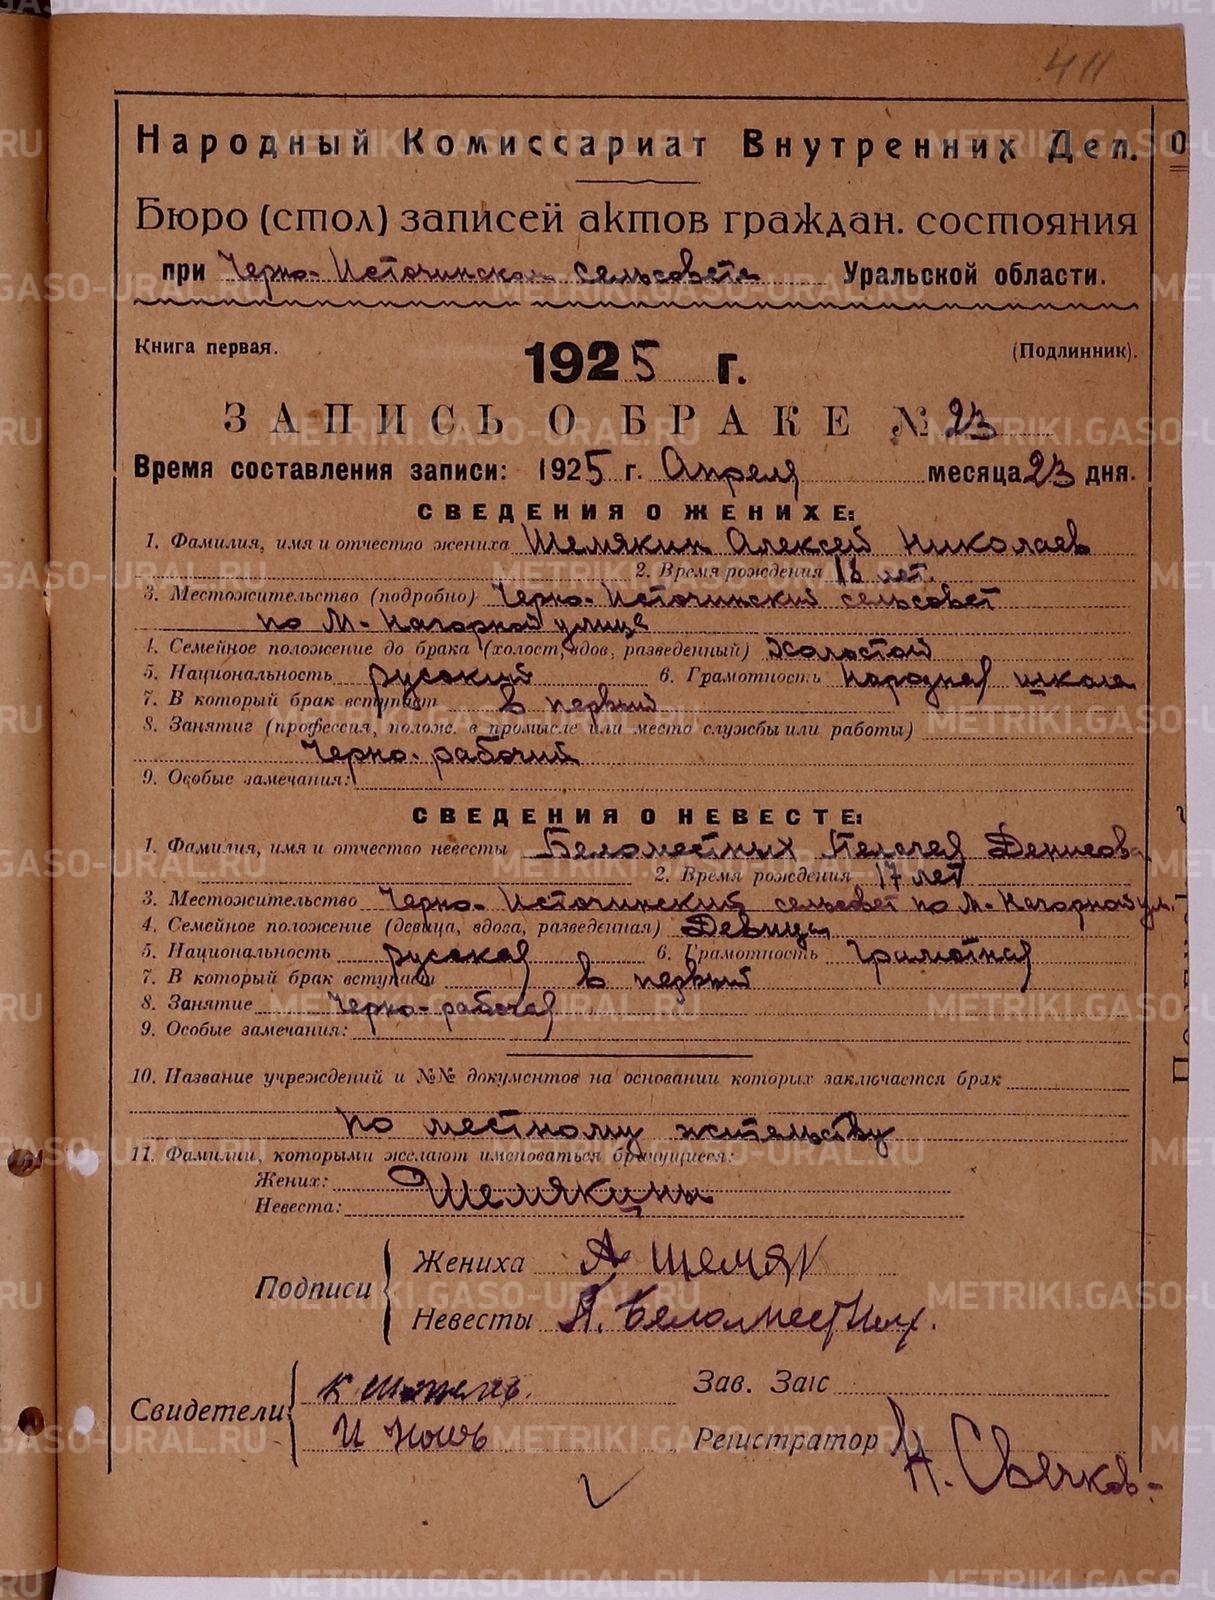 411
Народный Комиссариат Внутренних Дел.
Бюро (стол) записей актов граждан. состояния
при Черно-Источинском сельсовете Уральской области.
Книга первая. 1925 г. (Подлинник).
ЗАПИСЬ О БРАКЕ № 23
Время составления записи: 1925 г. Апреля месяца 23 дня.
СВЕДЕНИЯ О ЖЕНИХЕ:
1. Фамилия, имя и отчество жениха Шемякин Алексей Николаев
2. Время рождения 18 лет.
3. Местожительство (подробно) Черно-Источинский сельсовет
по М-Нагорной улице
4. Семейное положение до брака (холост, вдов, разведенный) Холостой
5. Национальность русский 6. Грамотность народная школа
7. В который брак вступает в первый
8. Занятие (профессия, полож. в промысле или место службы или работы)
Черно-рабочий
9. Особые замечания:
СВЕДЕНИЯ О НЕВЕСТЕ:
1. Фамилия, имя и отчество невесты Беломестных Пелагея Денисова
2. Время рождения 17 лет
3. Местожительство Черно-Источинский сельсовет по М-Нагорной ул.
4. Семейное положение (девица, вдова, разведенная) Девица
5. Национальность русская 6. Грамотность грамотная
7. В который брак вступает в первый
8. Занятие Черно-рабочая
9. Особые замечания:
10. Название учреждений и №№ документов на основании которых заключается брак
по местному жительству
11. Фамилии, которыми желают именоваться брачущиеся:
Жених: Шемякины
Невеста:
Подписи Жениха А Шемяк
Невесты П. Беломестных.
Свидетели
Зав. Загс
Регистратор Н. Свечков
METRIKI.GASO-URAL.RU